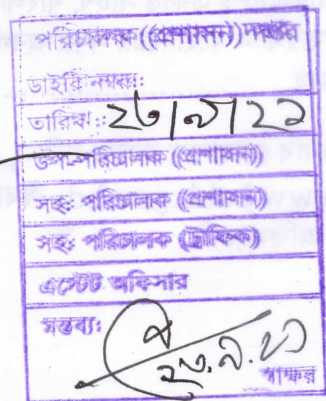 পরিচালক (প্রশাসন) দপ্তর
ডাইরি নম্বর:
তারিখ: ২৩/৯/২১
উপ-পরিচালক (প্রশাসন)
সহ: পরিচালক (প্রশাসন)
সহ: পরিচালক (ট্রাফিক)
এস্টেট অফিসার
মন্তব্য:
২৩.৯.২১
স্বাক্ষর